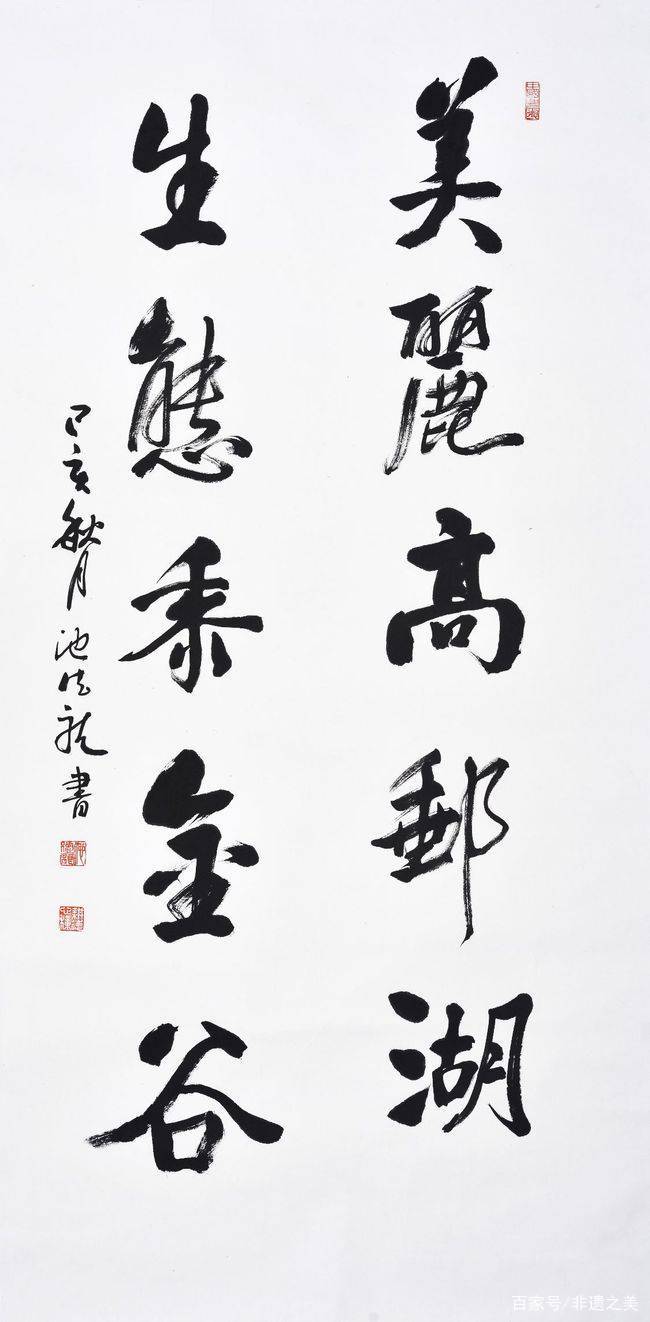 美麗高郵湖
生態黍金谷
己亥秋月池龍書
百家号/非遗之美